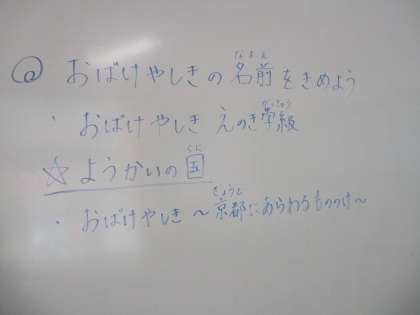 @ おばけやしきの名前をきめよう
なまえ
・ おばけやしき えのき学級
がっきゅう
☆ ようかいの国
くに
・ おばけやしき ～京都にあらわるもののけ～
きょうと